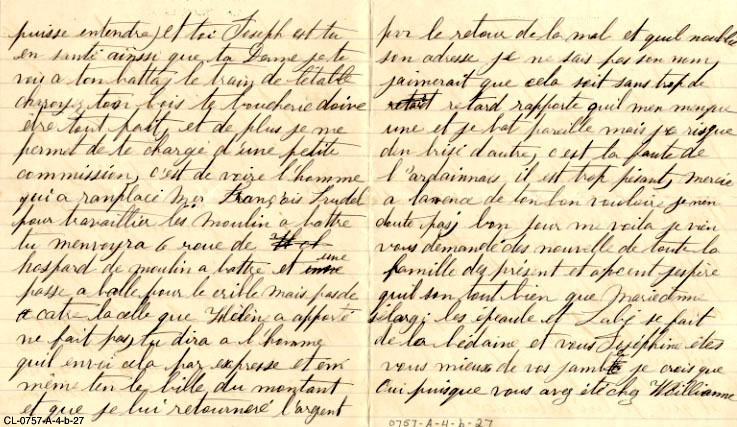 puisse entendre, et toi Joseph est tu
en santi ainssi que ta Dame je te
voi a ton battag, le train de létable
charoyez ton bois ta boucherie doive
être tout fait, et de plus je me
permet de te chargé d'une petite
commission, c'est de voire l'homme
qui a ranplacé Mr François Trudel
pour travaillier les moulin a battre
tu menvoyra 6 roue de
hospard de moulin a battre et une
passe a balle pour le crible mais pas de
catr la celle que Helène a apporté
ne fait pas, tu dira a l'homme
quil envoi cela par expresse et en
même ten le bille du montant
et que je lui retourneré l'argent
par le retour de la mal et quel noublie
son adresse je ne sais pas son nom,
jaimerait que cela soit sans trop de
retard rapporte quil men menque
une et je bat pareille mais je risque
den brisé d'autre, c'est la faute de
l'ardainnacs il est trop pésant, mercie
a lavence de ton bon vouloire je nen
doute pas, bon pour me voila je vien
vous demandé des nouvelle de toute la
famille des présent et abcent jespire
quil son tout bien que Marieanne
sélargi les épaule et Labé se fait
de la bédaine et vous Joséphine êtes
vous mieux de vos jambe je crois que
Oui puisque vous avez été chez Willianne
CL-0757-A-4-b-27
0757-A-4-b-27